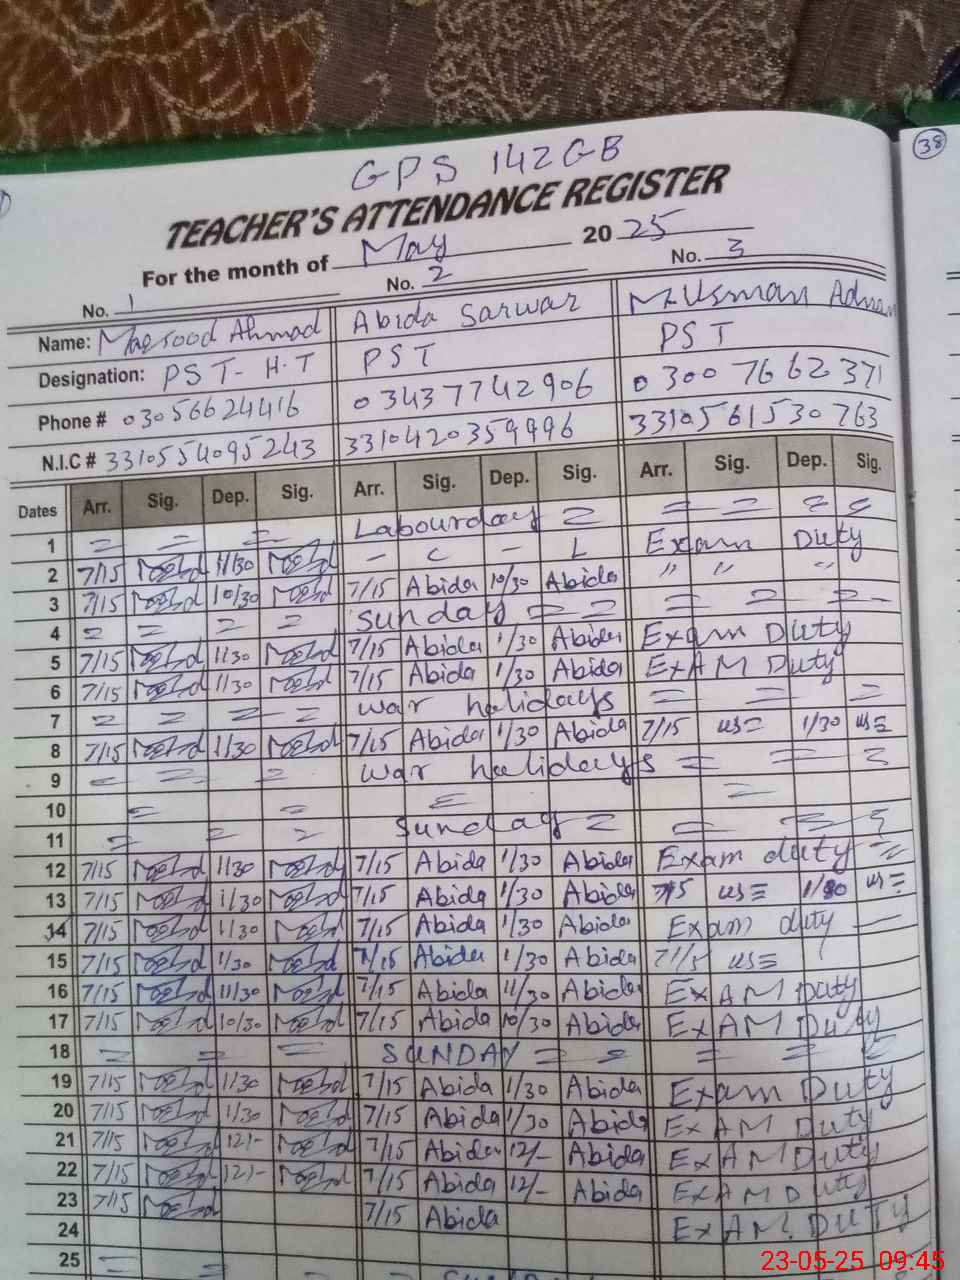 38
GPS 142GB
TEACHER'S ATTENDANCE REGISTER
For the month of May 2025
No. 1 No. 2 No. 3
Name: Maqsood Ahmad Abida Sarwar M.Usman Adnan
Designation: PST- H.T PST PST
Phone # 03056624416 03437742906 03007662371
N.I.C # 3310554095243 3310420359996 3310561530763
Dates Arr. Sig. Dep. Sig. Arr. Sig. Dep. Sig. Arr. Sig. Dep. Sig.
1 = = = Labourday = = = = =
2 7/15 11/30 - C - L Exam Duty
3 7/15 10/30 7/15 Abida 10/30 Abida " " "
4 = = = = Sunday = = = = = -
5 7/15 1/30 7/15 Abida 1/30 Abida Exam Duty
6 7/15 1/30 7/15 Abida 1/30 Abida ExAM Duty
7 = = = = war halidays = = =
8 7/15 1/30 7/15 Abida 1/30 Abida 7/15 us= 1/30 us=
9 = = = war halidays = = =
10 = = = =
11 = = = Sunday = = = =
12 7/15 1/30 7/15 Abida 1/30 Abida Exam duty =
13 7/15 1/30 7/15 Abida 1/30 Abida 7/15 us= 1/30 us=
14 7/15 1/30 7/15 Abida 1/30 Abida Exam duty
15 7/15 1/30 7/15 Abida 1/30 Abida 7/15 us=
16 7/15 11/30 7/15 Abida 11/30 Abida ExAM Duty
17 7/15 10/30 7/15 Abida 10/30 Abida ExAM Duty
18 = = = SUNDAY = = = = =
19 7/15 1/30 7/15 Abida 1/30 Abida Exam Duty
20 7/15 1/30 7/15 Abida 1/30 Abida ExAM Duty
21 7/15 12/- 7/15 Abida 12/- Abida ExAM Duty
22 7/15 12/- 7/15 Abida 12/- Abida ExAM Duty
23 7/15 7/15 Abida ExAM. DUTY
24
25 = = =
23-05-25 09:45